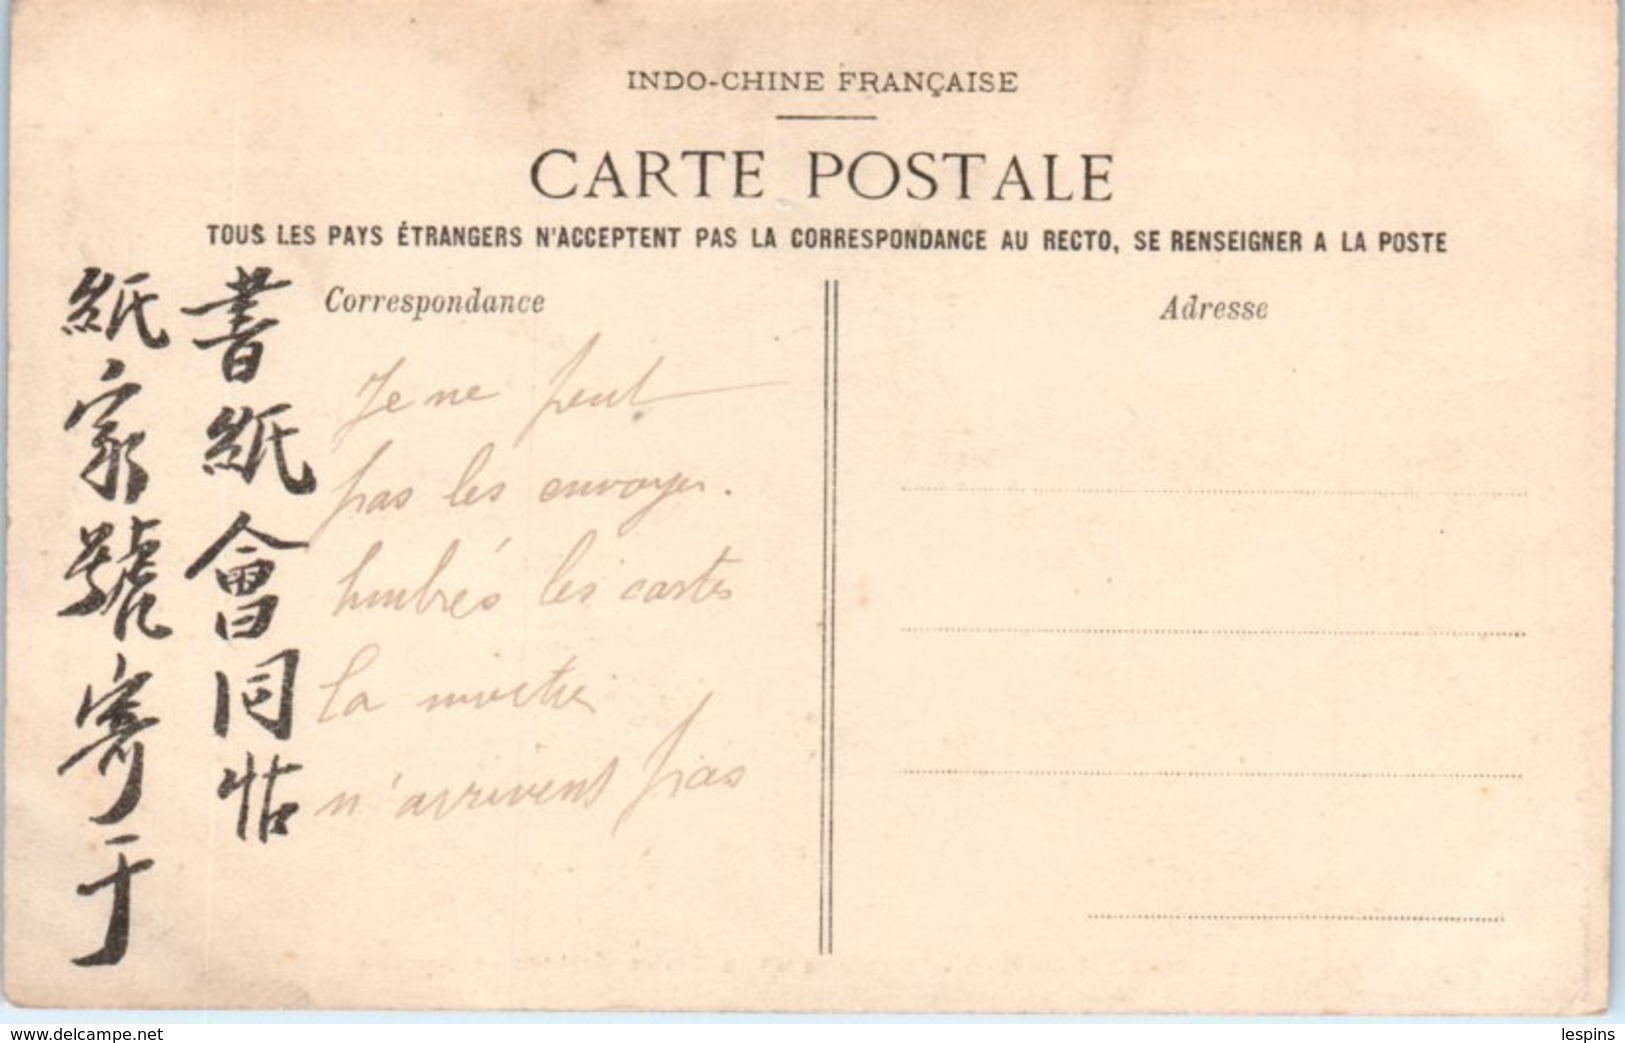 INDO-CHINE FRANÇAISE
CARTE POSTALE
TOUS LES PAYS ÉTRANGERS N'ACCEPTENT PAS LA CORRESPONDANCE AU RECTO, SE RENSEIGNER A LA POSTE
Correspondance
Adresse
書紙會同
紙家號寄于
Je ne peut
pas les envoyer.
timbrés les cartes
la moitié
n'arrivent pas
www.delcampe.net
lespins